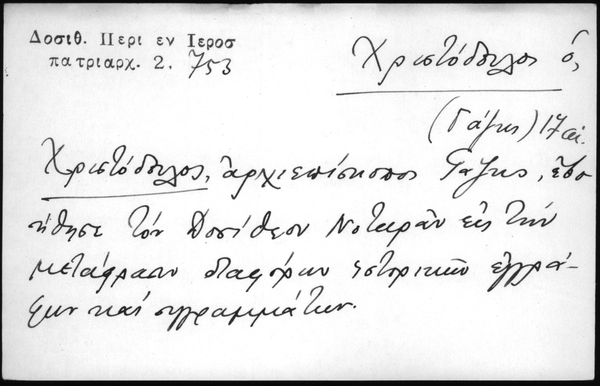 Δοσιθ. Περι εν Ιεροσ
πατριαρχ. 2. 753
Χριστόδουλος ὁ,
(Γάζης) 17 αἰ.
Χριστόδουλος, ἀρχιεπίσκοπος Γάζης, ἐβο
ήθησε τόν Δοσίθεον Νοταρᾶν εἰς τήν
μετάφρασιν διαφόρων ἱστορικῶν ἐγγρά-
φων καί συγγραμμάτων.